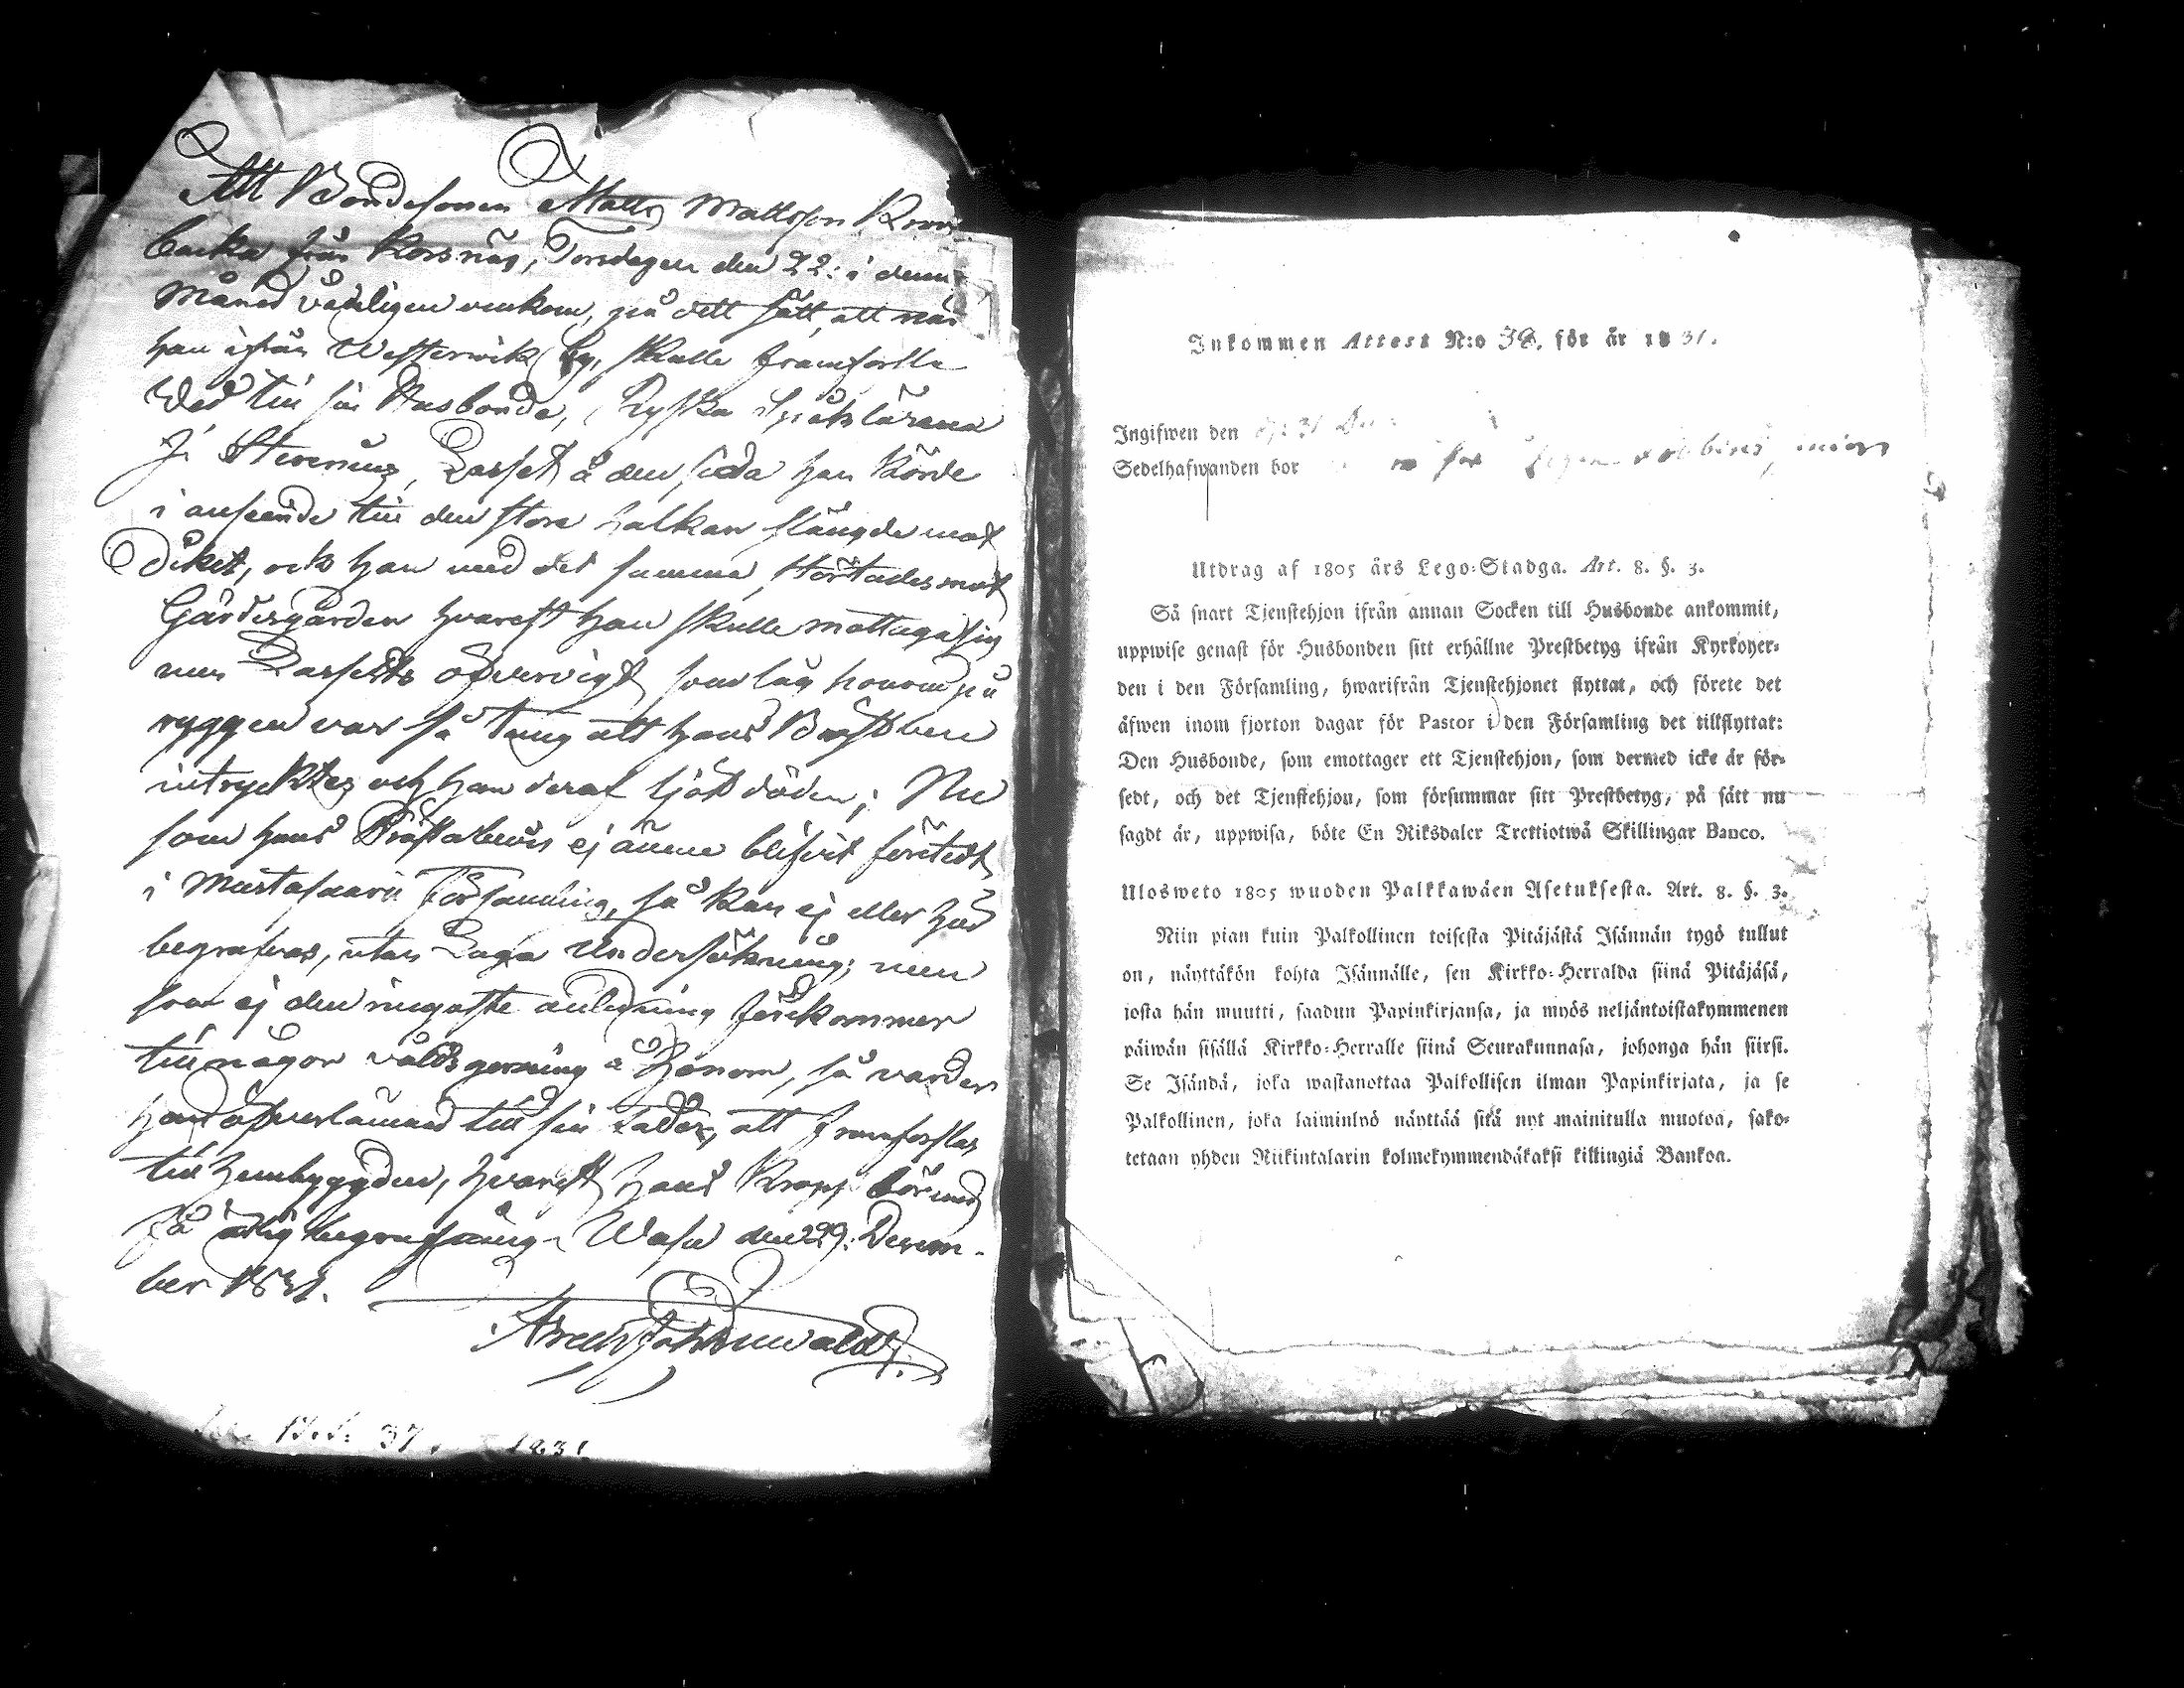 Att Bondesonen Matts Mattsson Kors
backa från Korsnäs, Torsdagen den 22: i denna
Månad vådeligen omkom, på dett sätt, att när
han ifrån Westerwik by, skulle framforsla
Wed till sin Husbonde, Ryska Språkläraren
J. Stevenius, Lasset å den sida han körde
i anseende till den stora halkan slängde mot
diket, och han med det samma, störtades mot
Gärdesgården hvarest han skulle mottaga sig
men Lassets öfvervigt som låg honom på
ryggen var så tung att hans Bröstben
intrycktes och han deraf ljöt döden; Nu
som hans Prästabevis ej ännu blifvit företedt
i Mustasaari Församling, så kan ej eller här
begrafvas, utan Laga Undersökning; men
som ej den ringaste anledning förekommer
till någon våldsgerning å honom, så varder
han öfverlämnad till sin Fader, att framforslas
till hembygden, hvarest hans Kropp bör
få ärlig begrafning. Wasa den 29: Decem-
ber 1831.
37. 1831
Inkommen Attest N:o 38. för år 1831.
Ingifwen den 31 Dec
Sedelhafwanden bor
Utdrag af 1805 års Lego-Stadga. Art. 8. §. 3.
Så snart Tjenstehjon ifrån annan Socken till Husbonde ankommit,
uppwise genast för Husbonden sitt erhållne Prestbetyg ifrån Kyrkoher-
den i den Församling, hwarifrån Tjenstehjonet flyttat, och förete det
äfwen inom fjorton dagar för Pastor i den Församling det tillflyttat:
Den Husbonde, som emottager ett Tjenstehjon, som dermed icke är för-
sedt, och det Tjenstehjon, som försummar sitt Prestbetyg, på sätt nu
sagdt är, uppwisa, böte En Riksdaler Trettiotwå Skillingar Banco.
Ulosweto 1805 wuoden Palkkawäen Asetuksesta. Art. 8. §. 3.
Niin pian kuin Palkollinen toisesta Pitäjästä Isännän tygö tullut
on, näyttäkön kohta Isännälle, sen Kirkko-Herralda siinä Pitäjäsä,
josta hän muutti, saadun Papinkirjansa, ja myös neljäntoistakymmenen
päiwän sisällä Kirkko-Herralle siinä Seurakunnasa, johonga hän siirsi.
Se Isändä, joka wastanottaa Palkollisen ilman Papinkirjata, ja se
Palkollinen, joka laiminlyö näyttää sitä nyt mainitulla muotoa, sako-
tetaan yhden Riikintalarin kolmekymmendäkaksi killingiä Bankoa.